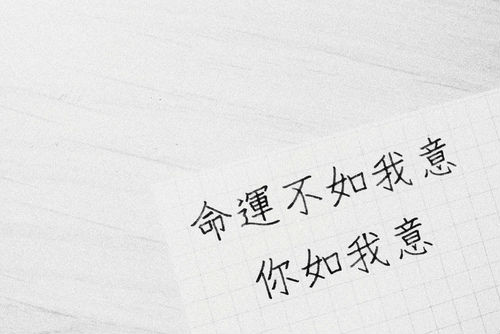 命運不如我意
你如我意